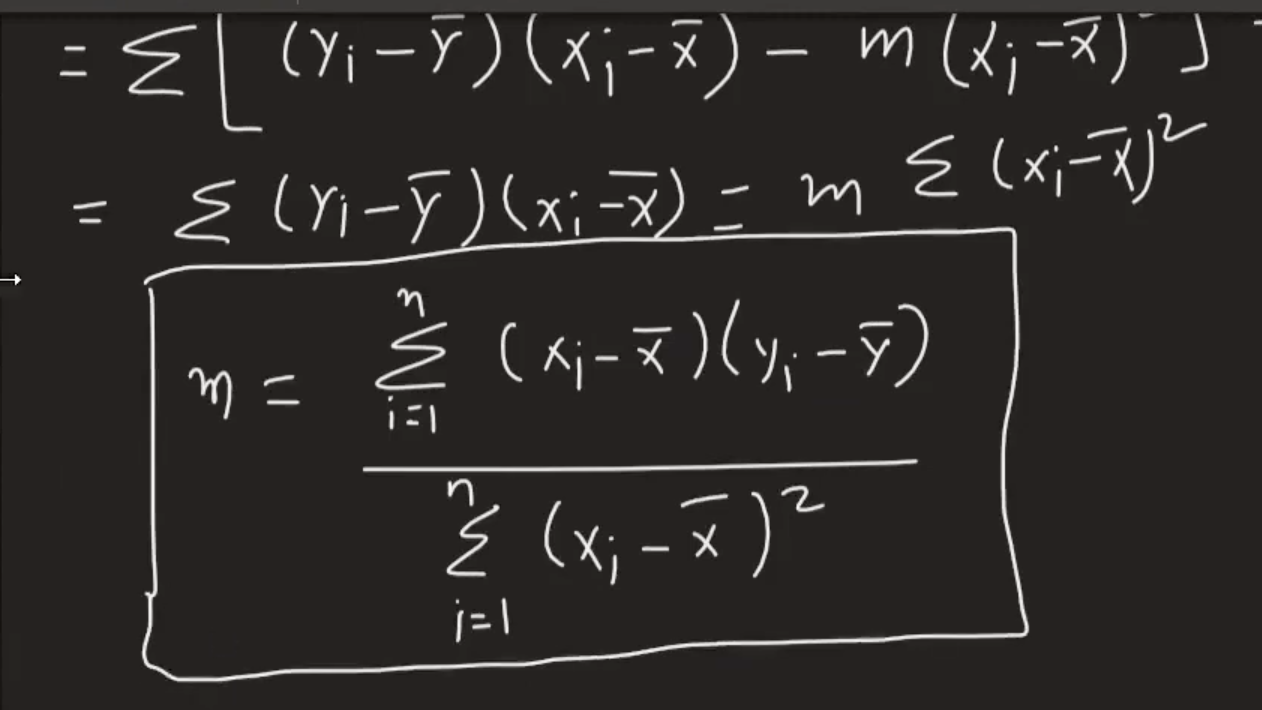 = Σ [ (yᵢ − ȳ) (xᵢ − x̄) − m (xᵢ − x̄)² ]
= Σ (yᵢ − ȳ) (xᵢ − x̄) = m Σ (xᵢ − x̄)²
m = \frac{\sum_{i=1}^{n} (xᵢ − x̄)(yᵢ − ȳ)}{\sum_{i=1}^{n} (xᵢ − x̄)²}